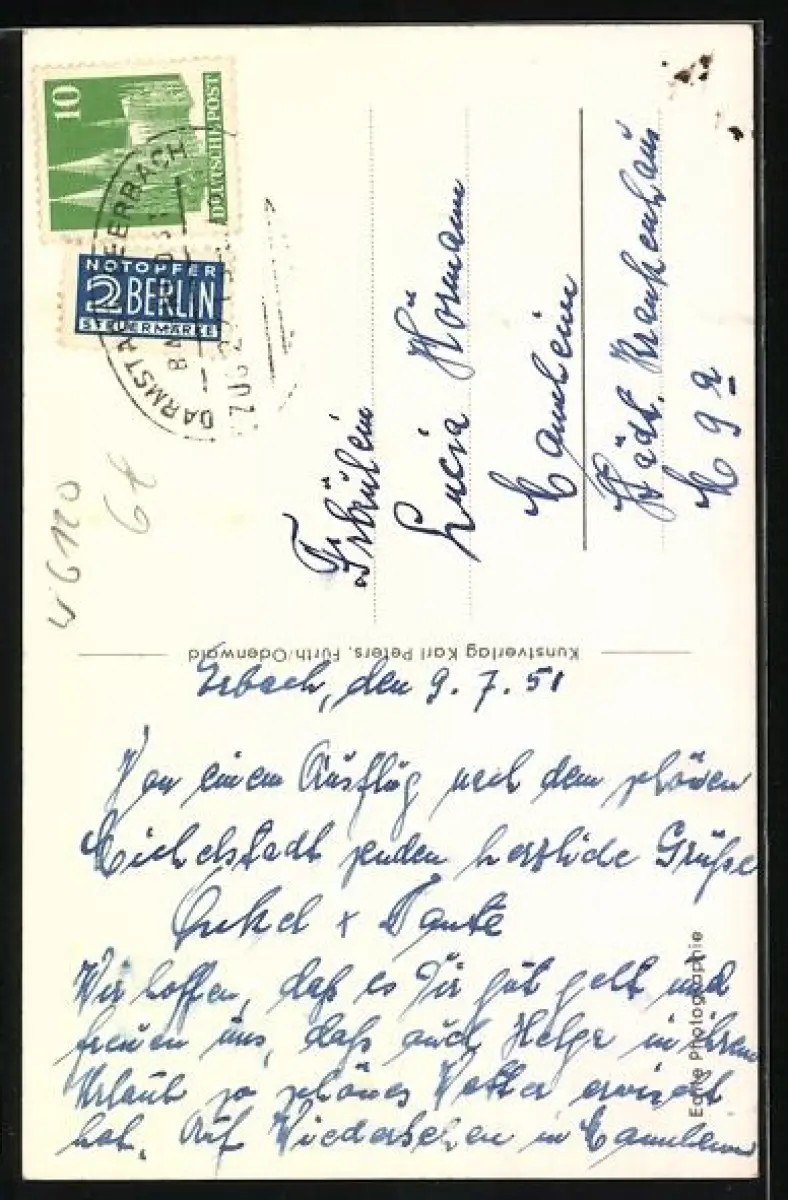 10
DEUTSCHE POST
NOTOPFER
2 BERLIN
STEUERMARKE
DARMSTADT ERBACH
BAHNPOST
ZUG
W6120
6t
Fräulein
Lucia Hörmann
Mannheim
Städt. Krankenhaus
M 9 a
Kunstverlag Karl Peters, Fürth/Odenwald
Erbach, den 9. 7. 51
Von einem Ausflug nach dem schönen
Michelstadt senden herzliche Grüße
Onkel + Tante
Wir hoffen, daß es Dir gut geht und
freuen uns, daß auch Helge in ihrem
Urlaub so schönes Wetter erwischt
hat. Auf Wiedersehen in Mannheim
Echte Photographie